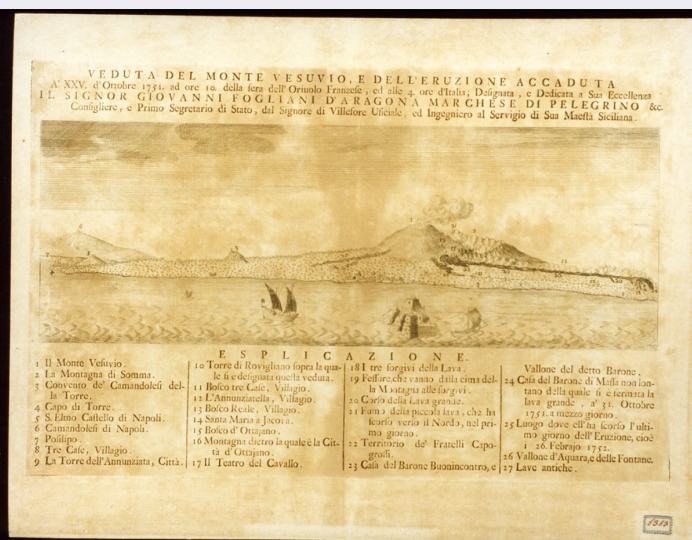 VEDUTA DEL MONTE VESUVIO, E DELL'ERUZIONE ACCADUTA
A' XXV. d'Ottobre 1751. ad ore 10. della sera dell'Oriuolo Franzese, ed alle 4. ore d'Italia; Designata, e Dedicata a Sua Eccellenza
IL SIGNOR GIOVANNI FOGLIANI D'ARAGONA MARCHESE DI PELEGRINO &c.
Consigliere, e Primo Segretario di Stato, dal Signore di Villefore Uficiale, ed Ingegniero al Servigio di Sua Maestà Siciliana.
ESPLICAZIONE.
1 Il Monte Vesuvio.
2 La Montagna di Somma.
3 Convento de' Camandolesi del-
la Torre.
4 Capo di Torre.
5 S. Elmo Castello di Napoli.
6 Camandolesi di Napoli.
7 Posilipo.
8 Tre Case, Villagio.
9 La Torre dell'Annunziata, Città.
10 Torre di Rovigliano sopra la qua-
le si è designata questa veduta.
11 Bosco tre Case, Villagio.
12 L'Annunziatella, Villagio.
13 Bosco Reale, Villagio.
14 Santa Maria a Jacova.
15 Bosco d'Ottajano.
16 Montagna dietro la quale è la Cit-
tà d'Ottajano.
17 Il Teatro del Cavallo.
18 I tre sorgivi della Lava.
19 Fessure, che vanno dalla cima del-
la Montagna alle sorgivi.
20 Corso della Lava grande.
21 Fumo della piccola lava, che ha
scorso verso il Nordo, nel pri-
mo giorno.
22 Territorio de' Fratelli Capo-
grossi.
23 Casa del Barone Buonincontro, e
Vallone del detto Barone.
24 Casa del Barone di Massa non lon-
tano della quale si è fermata la
lava grande, a' 31. Ottobre
1751. a mezzo giorno.
25 Luogo dove ell'ha scorso l'ulti-
mo giorno dell'Eruzione, cioè
i 26. Febrajo 1752.
26 Vallone d'Aquara, e delle Fontane.
27 Lave antiche.
1313